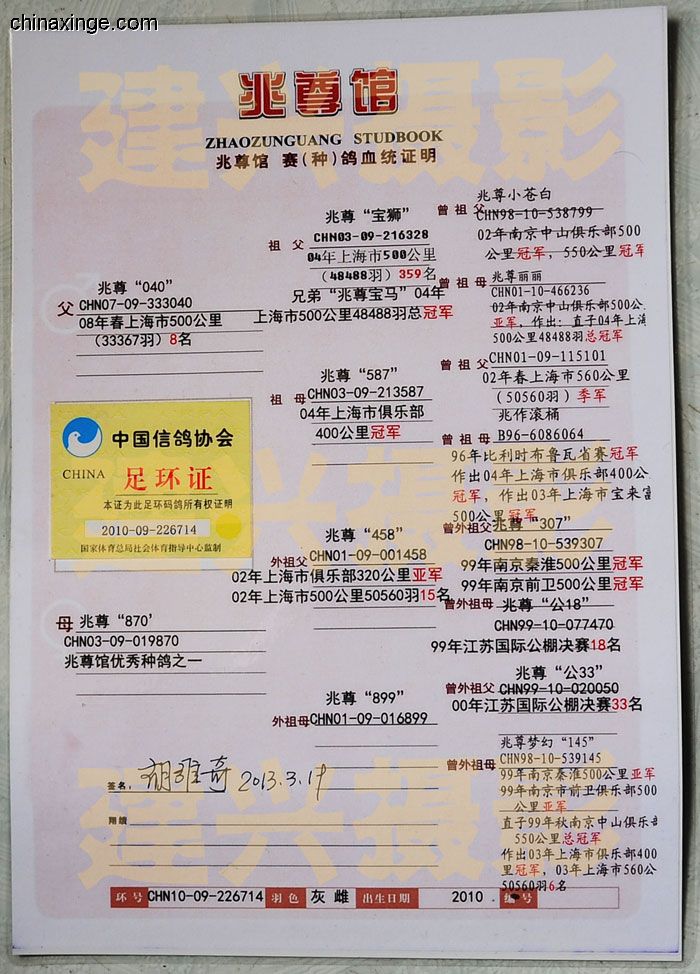 chinaxinge.com
建兴摄影
兆尊馆
ZHAOZUNGUANG STUDBOOK
兆尊馆 赛(种)鸽血统证明
父
兆尊“040”
CHN07-09-333040
08年春上海市500公里
(33367羽)8名
中国信鸽协会
CHINA
足环证
本证为此足环码鸽所有权证明
2010-09-226714
国家体育总局社会体育指导中心监制
母
兆尊“870'
CHN03-09-019870
兆尊馆优秀种鸽之一
祖 父
兆尊“宝狮”
CHN03-09-216328
04年上海市500公里
(48488羽)359名
兄弟“兆尊宝马”04年
上海市500公里48488羽总冠军
祖 母
兆尊“587”
CHN03-09-213587
04年上海市俱乐部
400公里冠军
外祖父
兆尊“458”
CHN01-09-001458
02年上海市俱乐部320公里亚军
02年上海市500公里50560羽15名
外祖母
兆尊“899”
CHN01-09-016899
曾 祖 父
兆尊小苍白
CHN98-10-538799
02年南京中山俱乐部500
公里冠军，550公里冠军
曾 祖 母
兆尊丽丽
CHN01-10-466236
02年南京中山俱乐部500公
亚军，作出：直子04年上海
500公里48488羽总冠军
曾 祖 父
CHN01-09-115101
02年春上海市560公里
(50560羽)季军
曾 祖 母
兆作滚桶
B96-6086064
96年比利时布鲁瓦省赛冠军
作出04年上海市俱乐部400公
冠军，作出03年上海市宝来富
500公里冠军
曾外祖父
兆尊“307”
CHN98-10-539307
99年南京秦淮500公里冠军
99年南京前卫500公里冠军
曾外祖母
兆尊“公18”
CHN99-10-077470
99年江苏国际公棚决赛18名
曾外祖父
兆尊“公33”
CHN99-10-020050
00年江苏国际公棚决赛33名
曾外祖母
兆尊梦幻“145”
CHN98-10-539145
99年南京秦淮500公里亚军
99年南京市前卫俱乐部500
公里亚军
直子99年秋南京中山俱乐部
550公里总冠军
作出03年上海市俱乐部400
里冠军，03年上海市560公
50560羽6名
建兴摄影
签名，胡雅奇 2013.3.19
翔绩
建兴摄影
环号 CHN10-09-226714 羽色 灰 雌 出生日期 2010 . 编号